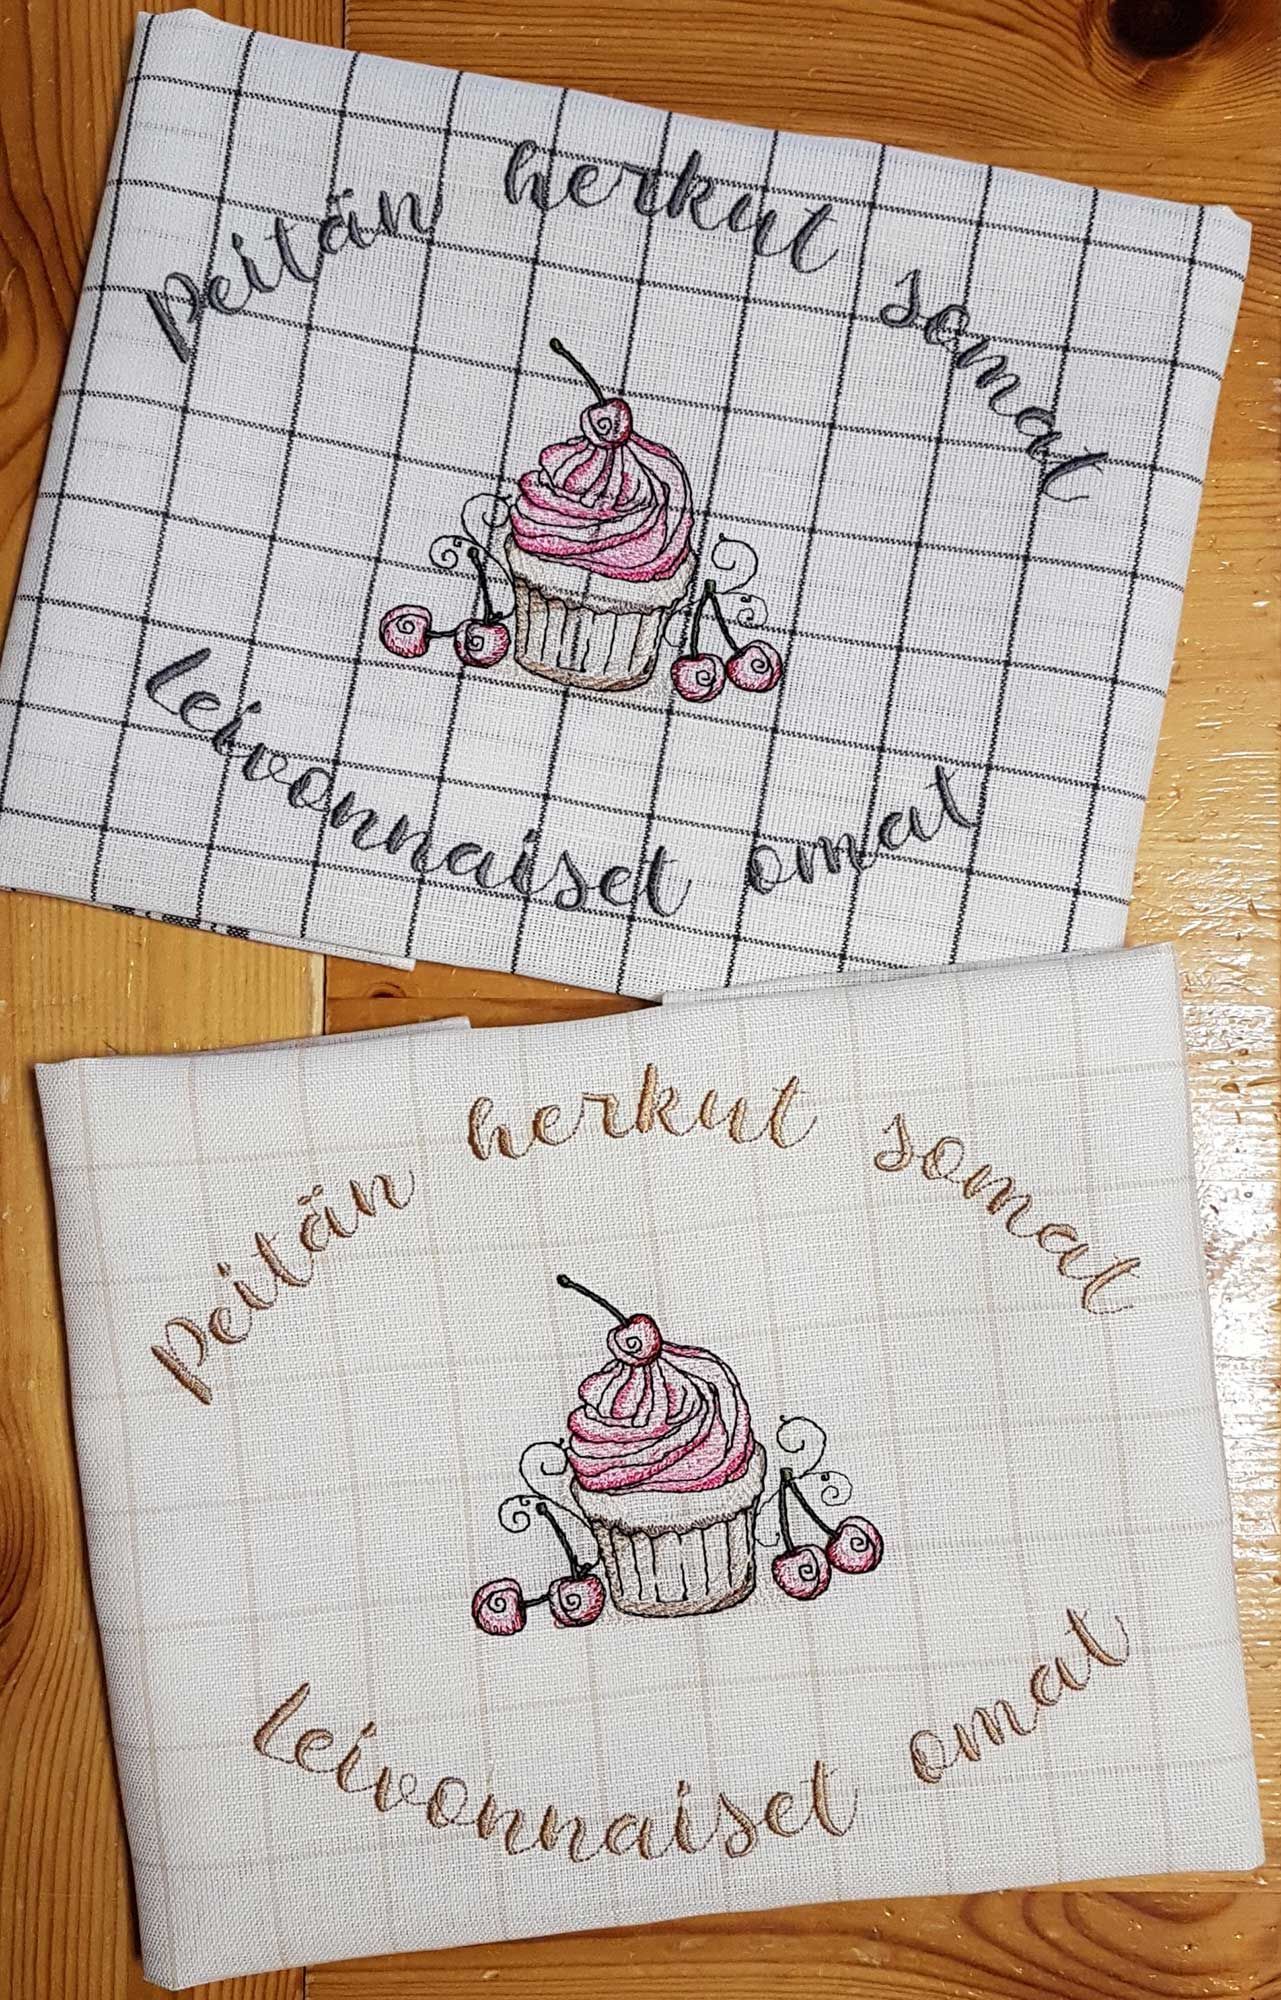 peitän herkut somat
leivonnaiset omat
peitän herkut somat
leivonnaiset omat